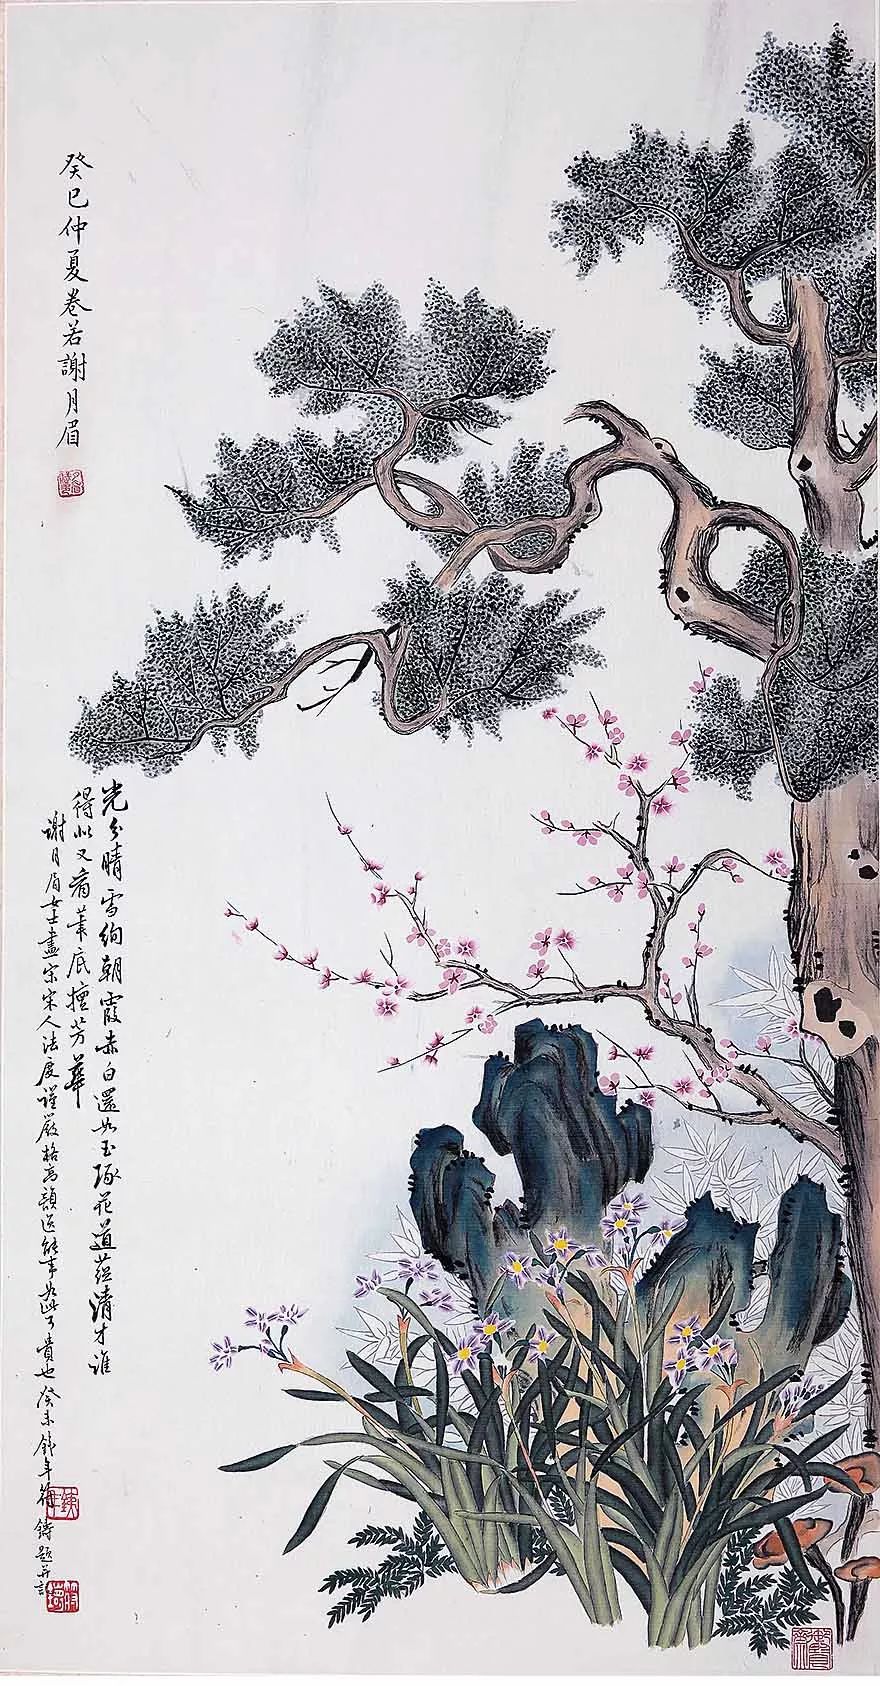 癸巳仲夏卷若謝月眉
光分晴雪絢朝霞赤白還如玉琢花道蘊清才誰
得似又看筆底擅芳華
謝月眉女士畫宗宋人法度謹嚴格高韻逸能事如此可貴也癸未銕年符鑄題并記